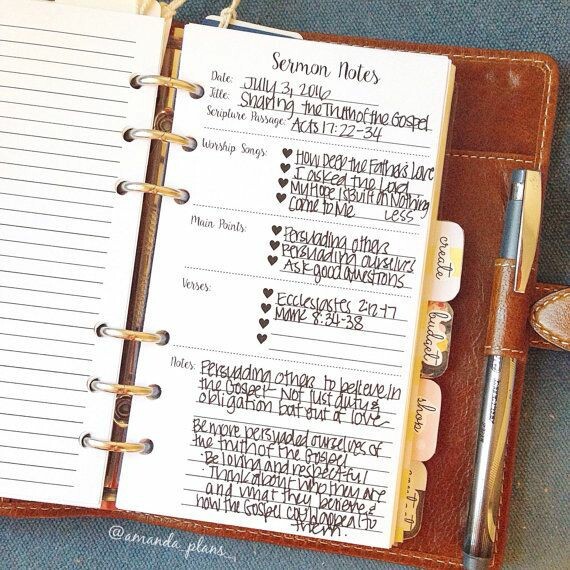 Sermon Notes
Date: JULY 3, 2016
Title: Sharing the Truth of the Gospel
Scripture Passage: Acts 17:22-34
Worship Songs: ♥ How Deep the Father's Love
♥ I asked the Lord
♥ My Hope Is Built on Nothing
♥ Come to Me Less
Main Points: ♥ Persuading others
♥ Persuading ourselves
♥ Ask good questions
Verses: ♥ Ecclesiastes 2:12-17
♥ Mark 8:34-38
♥
♥
Notes: Persuading others to believe in
the Gospel - Not just duty &
obligation but out of love
Be more persuaded ourselves of
the truth of the Gospel
- Be loving and respectful
- Think about who they are
and what they believe &
how the Gospel could appeal to
them.
create
budget
shop
@amanda_plans_